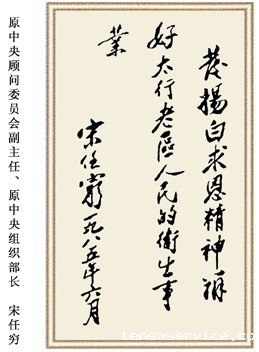 发扬白求恩精神办
好太行老区人民的卫生事
业
宋任穷 一九八五年六月
原中央顾问委员会副主任、原中央组织部长 宋任穷
tensoservice.co